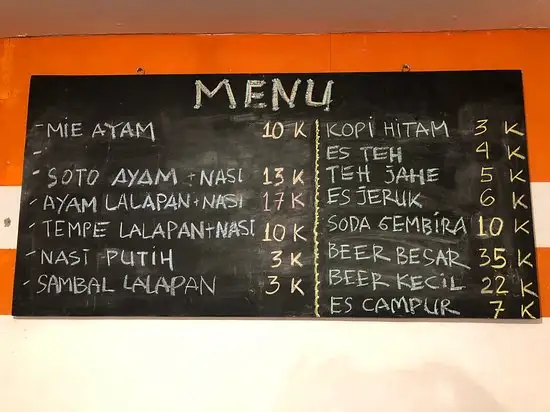 MENU
- MIE AYAM 10 K
-
- SOTO AYAM + NASI 13 K
- AYAM LALAPAN + NASI 17 K
- TEMPE LALAPAN + NASI 10 K
- NASI PUTIH 3 K
- SAMBAL LALAPAN 3 K
KOPI HITAM 3 K
ES TEH 4 K
TEH JAHE 5 K
ES JERUK 6 K
SODA GEMBIRA 10 K
BEER BESAR 35 K
BEER KECIL 22 K
ES CAMPUR 7 K